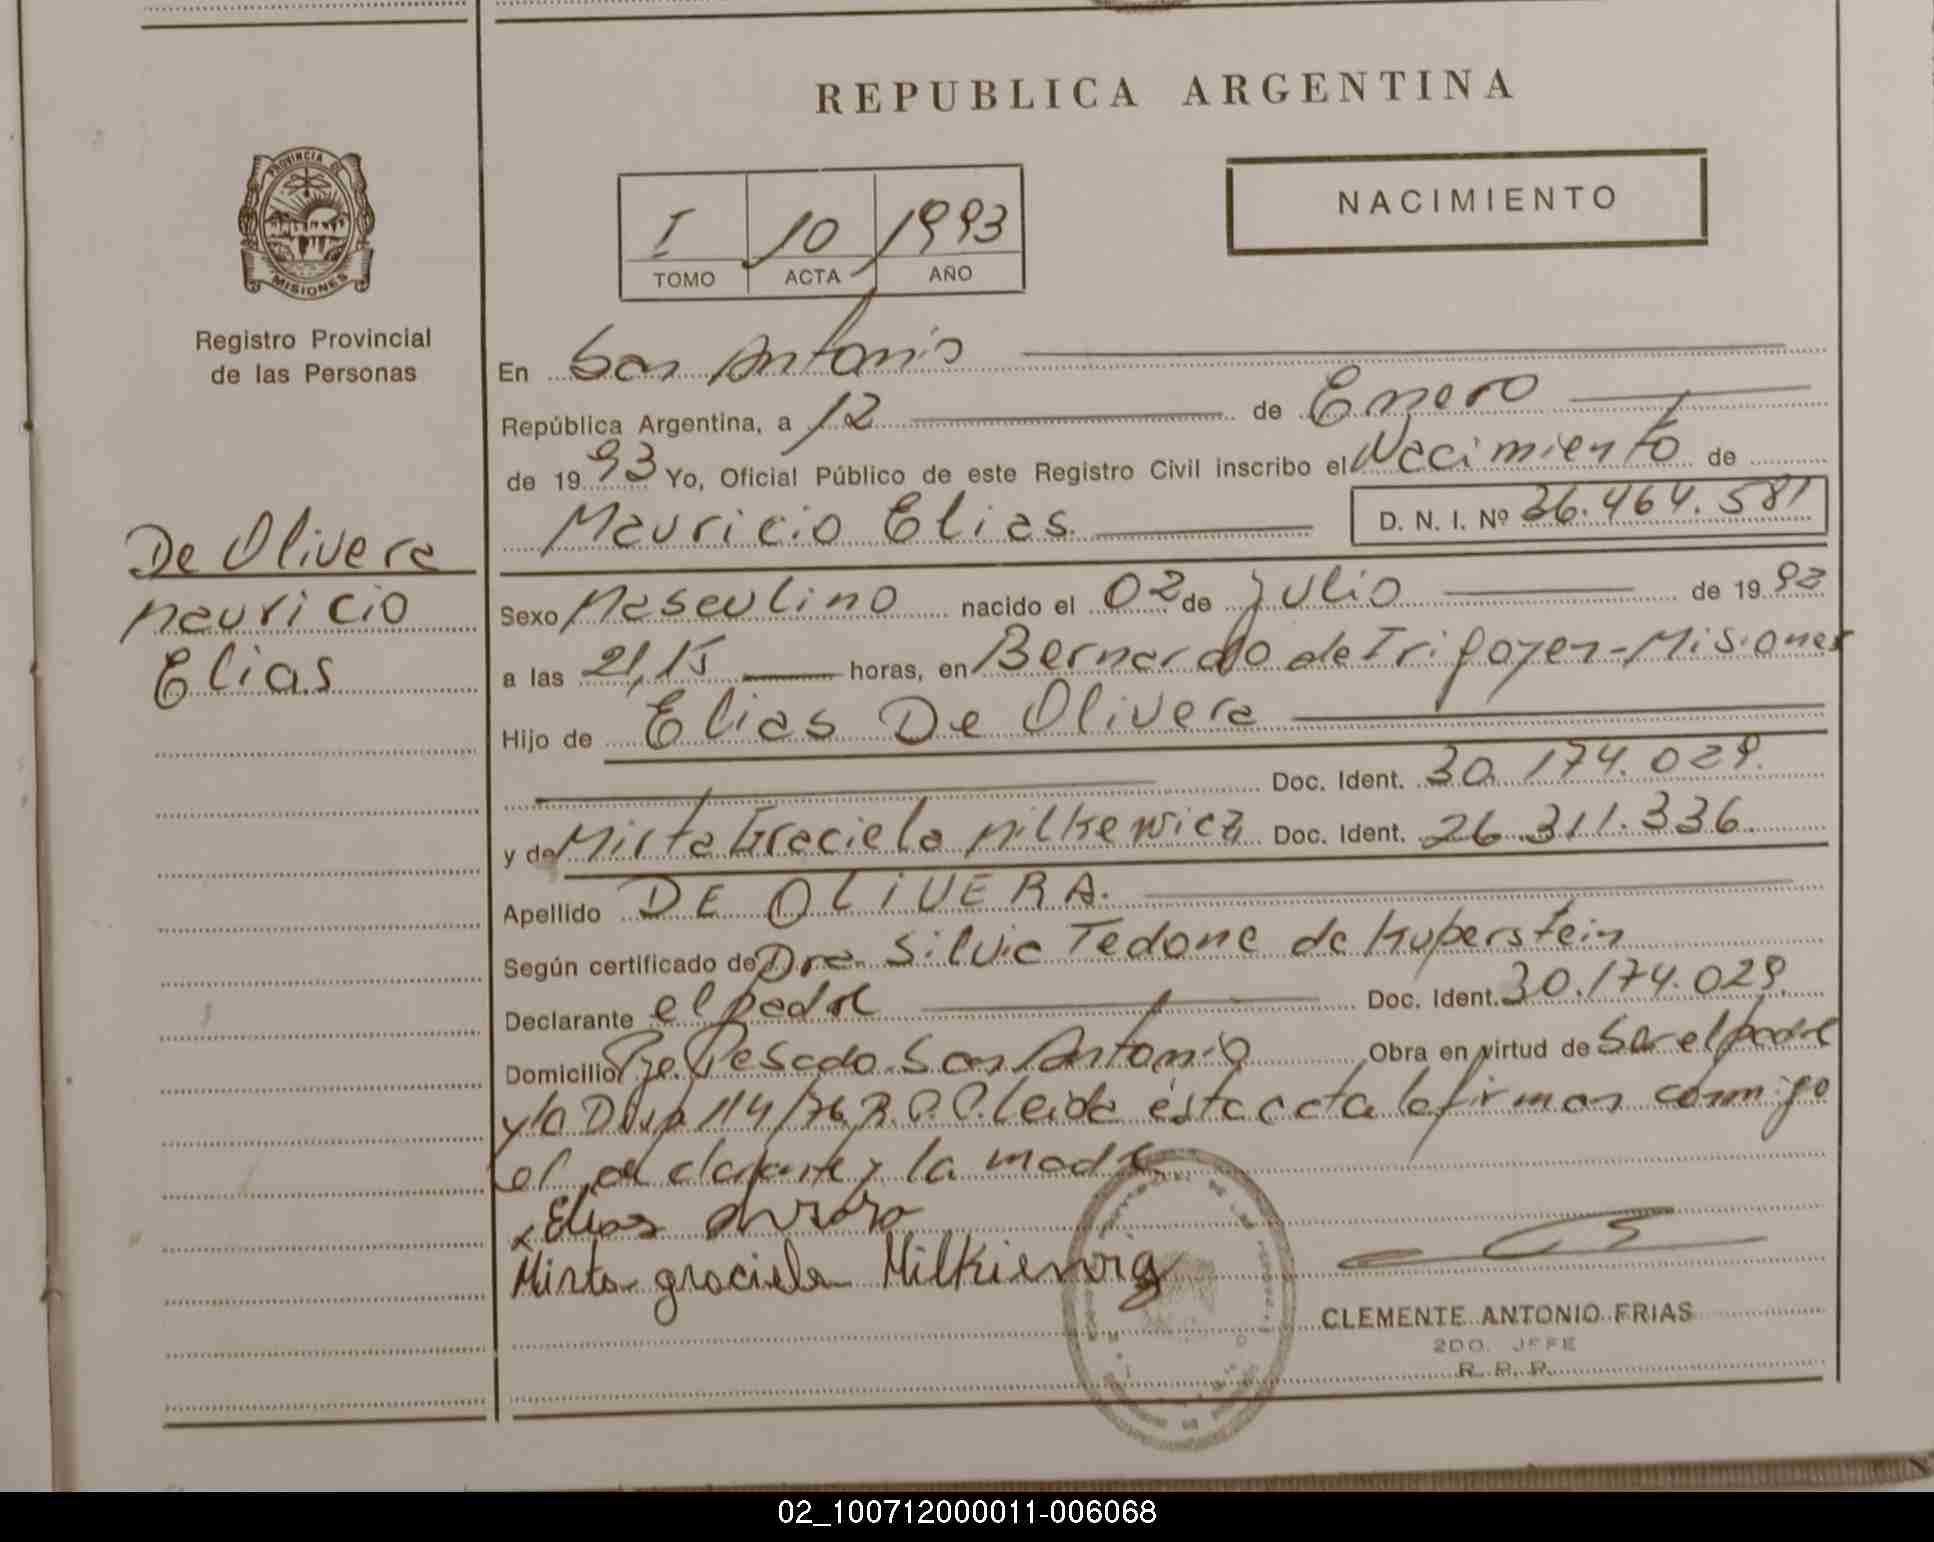 REPUBLICA ARGENTINA
NACIMIENTO
PROVINCIA DE
MISIONES
Registro Provincial
de las Personas
I 10 1993
TOMO ACTA AÑO
En San Antonio
República Argentina, a 12 de Enero
de 1993 Yo, Oficial Público de este Registro Civil inscribo el Nacimiento de
Mauricio Elias D. N. I. Nº 36.464.581
De Olivera
Mauricio
Elias
Sexo Masculino nacido el 02 de Julio de 1992
a las 21,15 horas, en Bernardo de Irigoyen - Misiones
Hijo de Elias De Olivera
Doc. Ident. 30.174.029.
y de Mirta Graciela Milkewicz Doc. Ident. 26.311.336.
Apellido DE OLIVERA.
Según certificado de Dra. Silvia Tedone de Kuperstein
Declarante el padre Doc. Ident. 30.174.029.
Domicilio Pje. Pesado San Antonio Obra en virtud de Ser el padre
y la Disp 114/76 R.P.P. leida ésta acta la firman conmigo
el declarante y la madre
Elias
Mirta graciela Milkiewig
CLEMENTE ANTONIO FRIAS
2DO. JEFE
R. P. P.
02_100712000011-006068